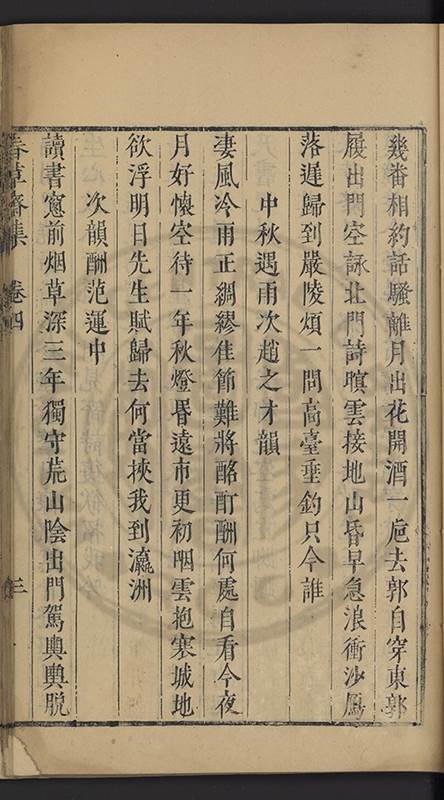 幾番相約話騷離月出花開酒一巵去郭自穿東郭
履出門空詠北門詩暝雲接地山昏早急浪衝沙鴈
落遲歸到嚴陵煩一問高臺垂釣只今誰
中秋遇雨次趙之才韻
凄風冷雨正綢繆佳節難將酩酊酬何處自看今夜
月好懷空待一年秋燈昬遠市更初咽雲抱寒城地
欲浮明日先生賦歸去何當挾我到瀛洲
次韻酬范運中
讀書窻前烟草深三年獨守荒山陰出門駕輿輿脫
春草齋集 卷四 三